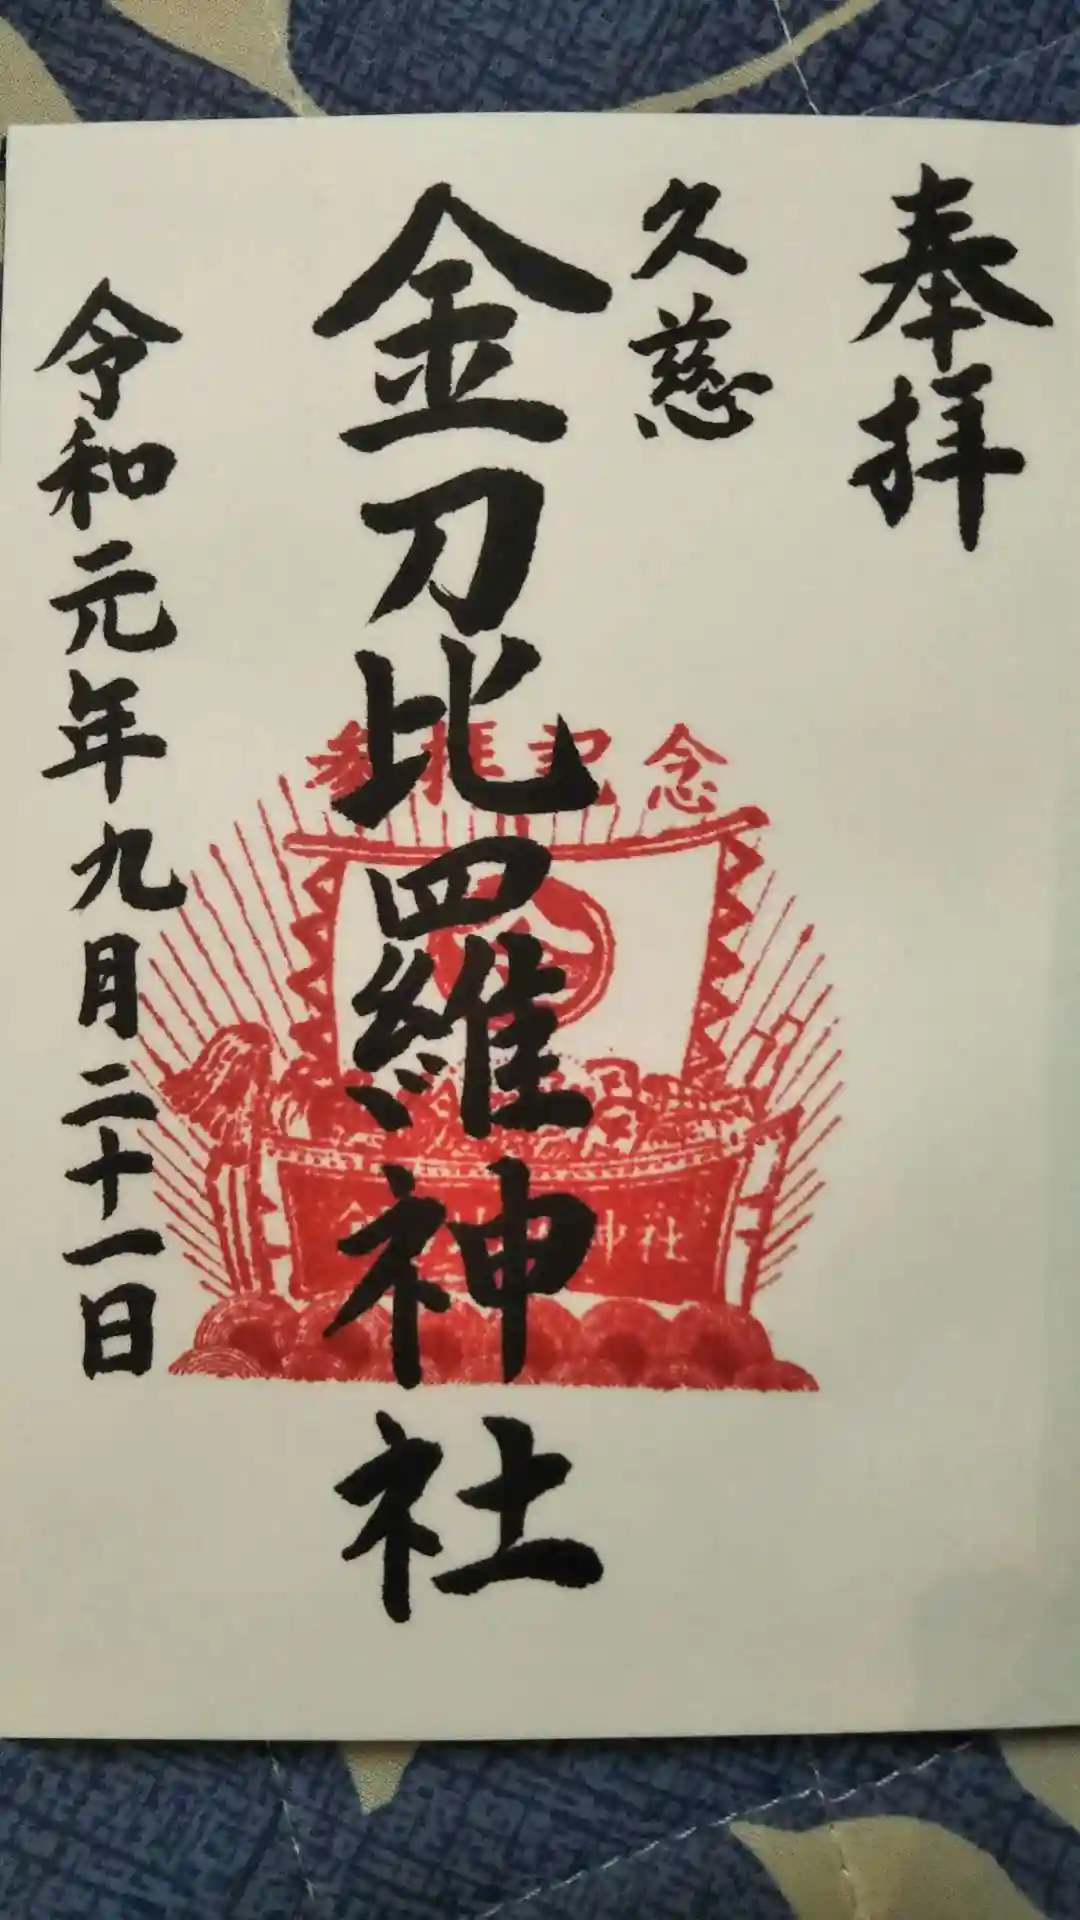 奉拝
久慈
金刀比羅神社
参拝記念
神社
令和元年九月二十一日